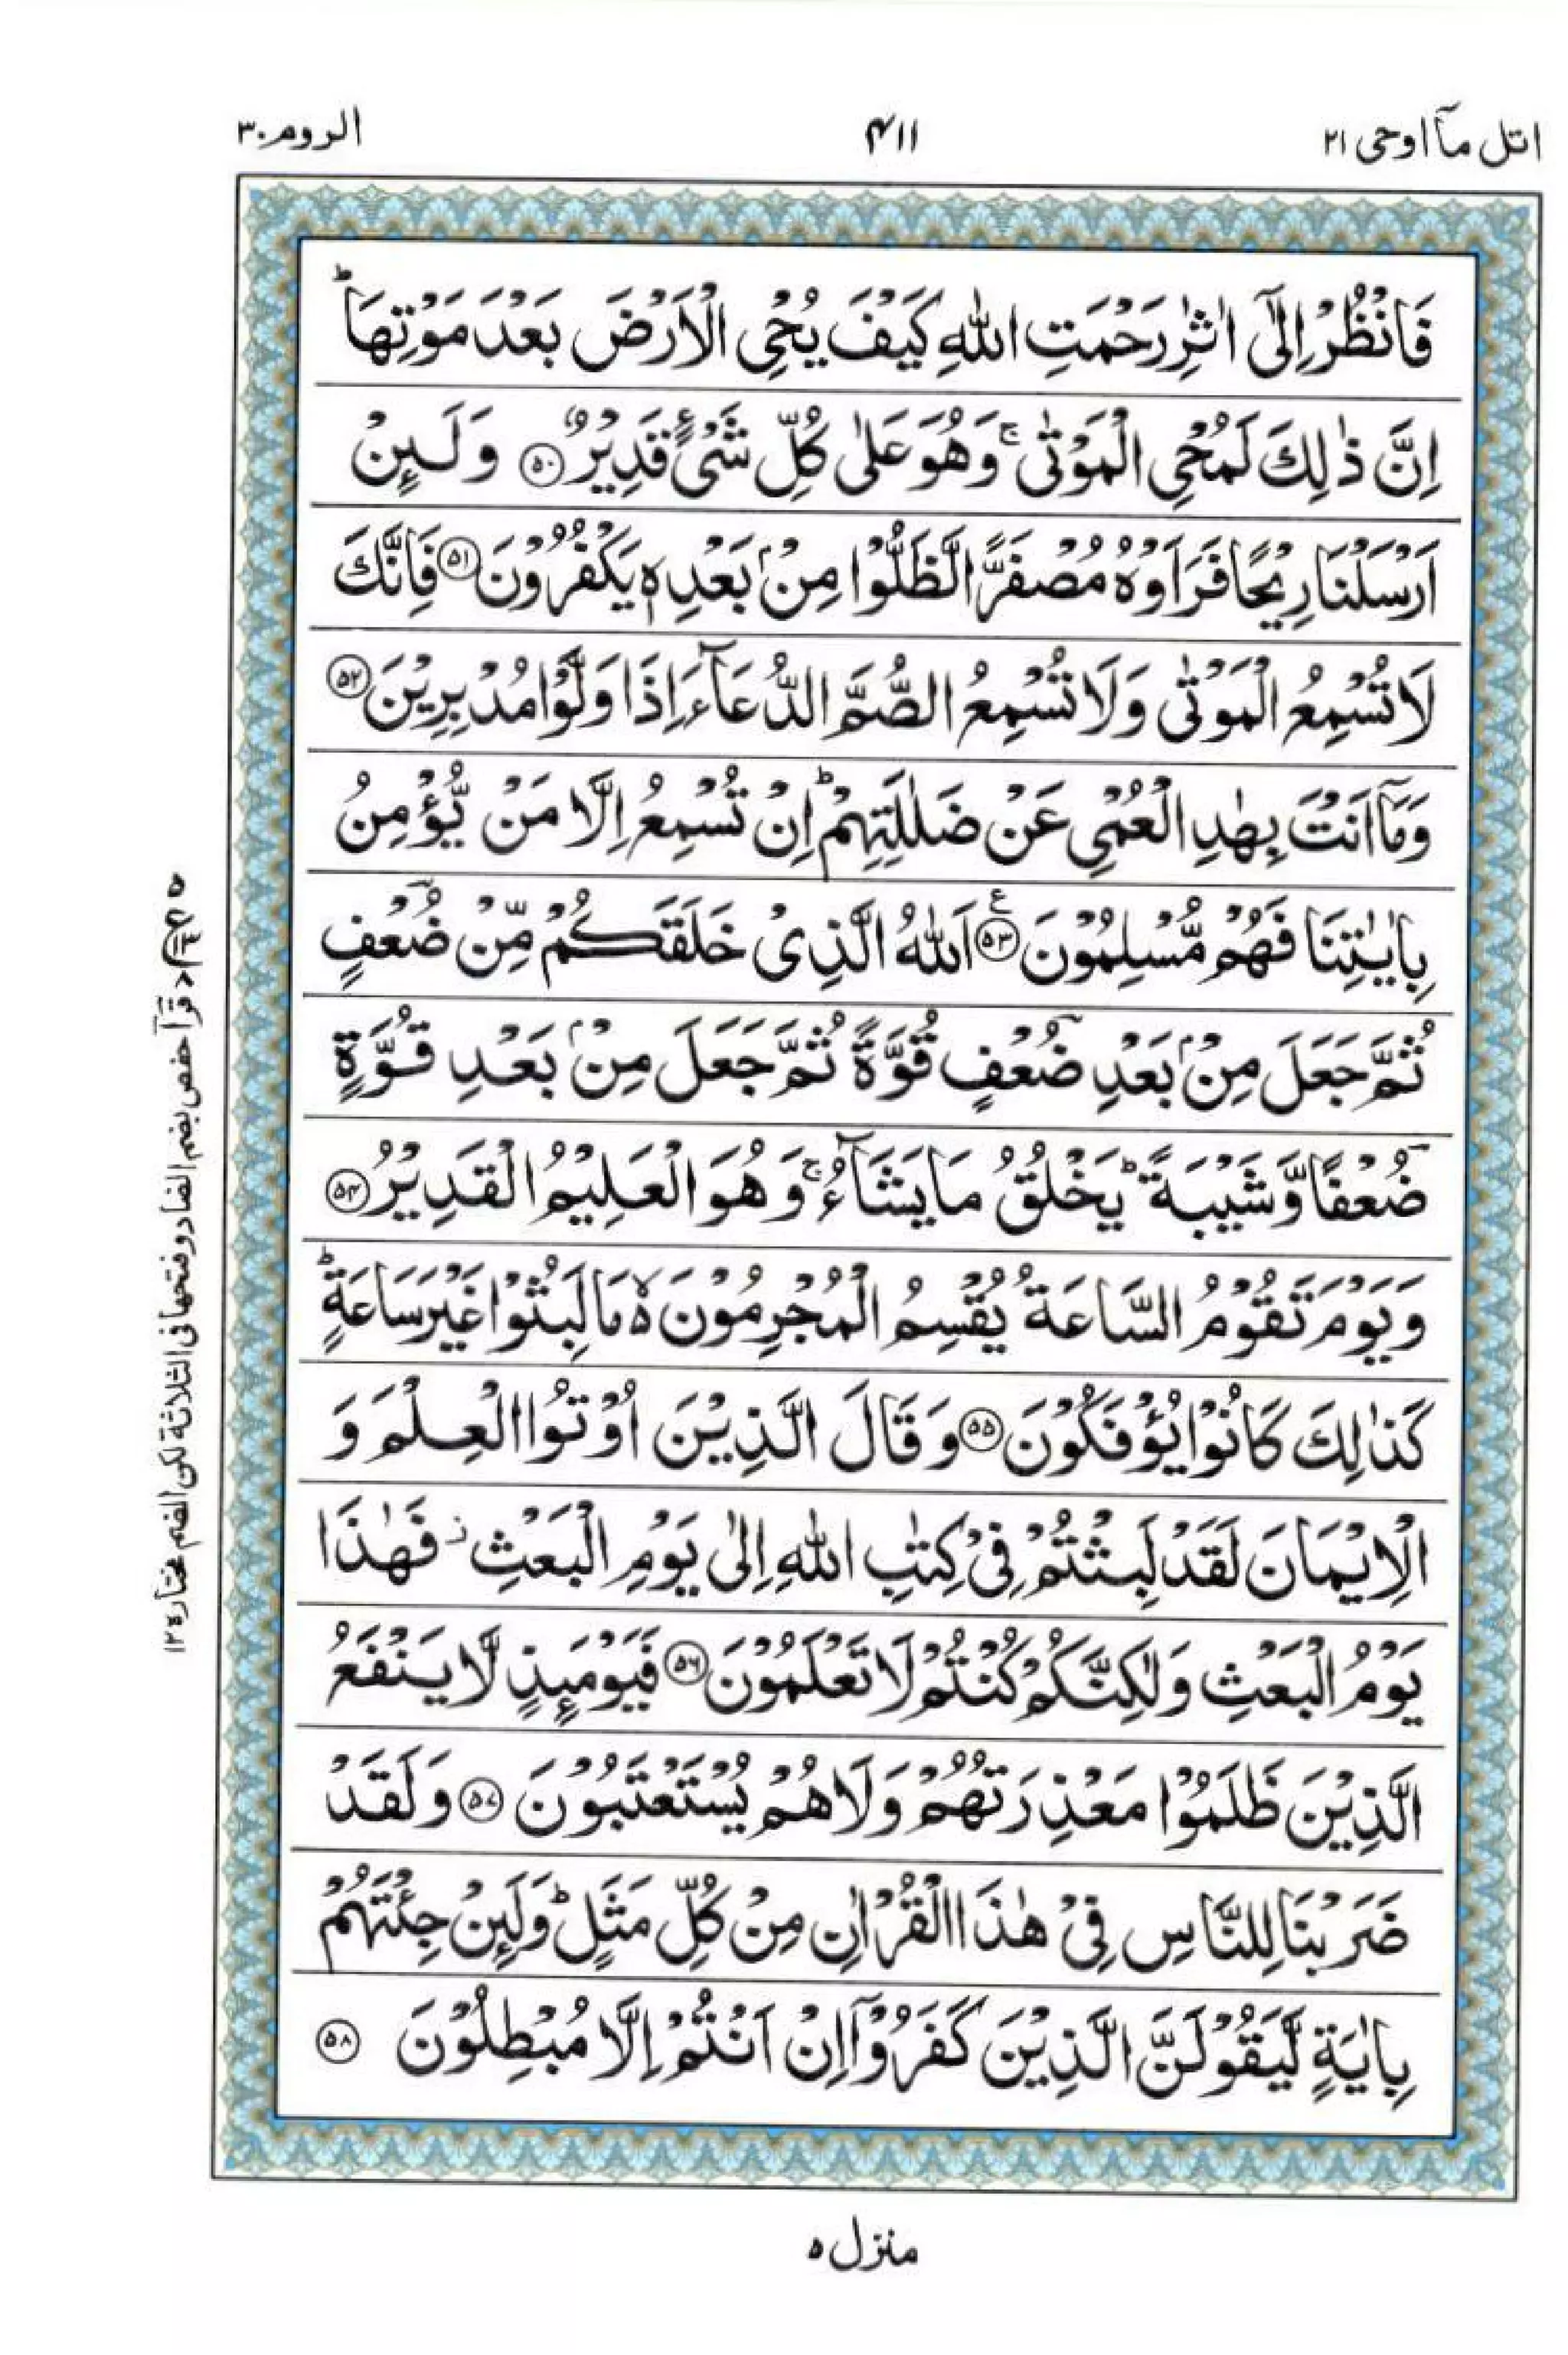 اتل مآ اوحی ۲۱
۴۱۱
الروم ۳۰
فَانْظُرْ اِلٰٓى اٰثٰرِ رَحْمَتِ اللّٰهِ كَيْفَ يُحْيِ الْاَرْضَ بَعْدَ مَوْتِهَا ؕ
اِنَّ ذٰلِكَ لَمُحْيِ الْمَوْتٰى ۚ وَهُوَ عَلٰى كُلِّ شَىْءٍ قَدِيْرٌ ۝۵۰ وَلَىِٕنْ
اَرْسَلْنَا رِيْحًا فَرَاَوْهُ مُصْفَرًّا لَّظَلُّوْا مِنْۢ بَعْدِهٖ يَكْفُرُوْنَ ۝۵۱ فَاِنَّكَ
لَا تُسْمِعُ الْمَوْتٰى وَلَا تُسْمِعُ الصُّمَّ الدُّعَآءَ اِذَا وَلَّوْا مُدْبِرِيْنَ ۝۵۲
وَمَآ اَنْتَ بِهٰدِ الْعُمْىِ عَنْ ضَلٰلَتِهِمْ ؕ اِنْ تُسْمِعُ اِلَّا مَنْ يُّؤْمِنُ
بِاٰيٰتِنَا فَهُمْ مُّسْلِمُوْنَ ۝۵۳ ع اَللّٰهُ الَّذِىْ خَلَقَكُمْ مِّنْ ضُعْفٍ
ثُمَّ جَعَلَ مِنْۢ بَعْدِ ضُعْفٍ قُوَّةً ثُمَّ جَعَلَ مِنْۢ بَعْدِ قُوَّةٍ
ضُعْفًا وَّشَيْبَةً ؕ يَخْلُقُ مَا يَشَآءُ ۚ وَهُوَ الْعَلِيْمُ الْقَدِيْرُ ۝۵۴
وَيَوْمَ تَقُوْمُ السَّاعَةُ يُقْسِمُ الْمُجْرِمُوْنَ ۙ۵ مَا لَبِثُوْا غَيْرَ سَاعَةٍ ؕ
كَذٰلِكَ كَانُوْا يُؤْفَكُوْنَ ۝۵۵ وَقَالَ الَّذِيْنَ اُوْتُوا الْعِلْمَ وَ
الْاِيْمَانَ لَقَدْ لَبِثْتُمْ فِىْ كِتٰبِ اللّٰهِ اِلٰى يَوْمِ الْبَعْثِ ز فَهٰذَا
يَوْمُ الْبَعْثِ وَلٰكِنَّكُمْ كُنْتُمْ لَا تَعْلَمُوْنَ ۝۵۶ فَيَوْمَىِٕذٍ لَّا يَنْفَعُ
الَّذِيْنَ ظَلَمُوْا مَعْذِرَتُهُمْ وَلَا هُمْ يُسْتَعْتَبُوْنَ ۝۵۷ وَلَقَدْ
ضَرَبْنَا لِلنَّاسِ فِىْ هٰذَا الْقُرْاٰنِ مِنْ كُلِّ مَثَلٍ ؕ وَلَىِٕنْ جِئْتَهُمْ
بِاٰيَةٍ لَّيَقُوْلَنَّ الَّذِيْنَ كَفَرُوْٓا اِنْ اَنْتُمْ اِلَّا مُبْطِلُوْنَ ۝۵۸
قرأ حفص بضم الضاد وفتحها فی الثلاثة لکن الضم مختاره ۱۲
منزل ۵